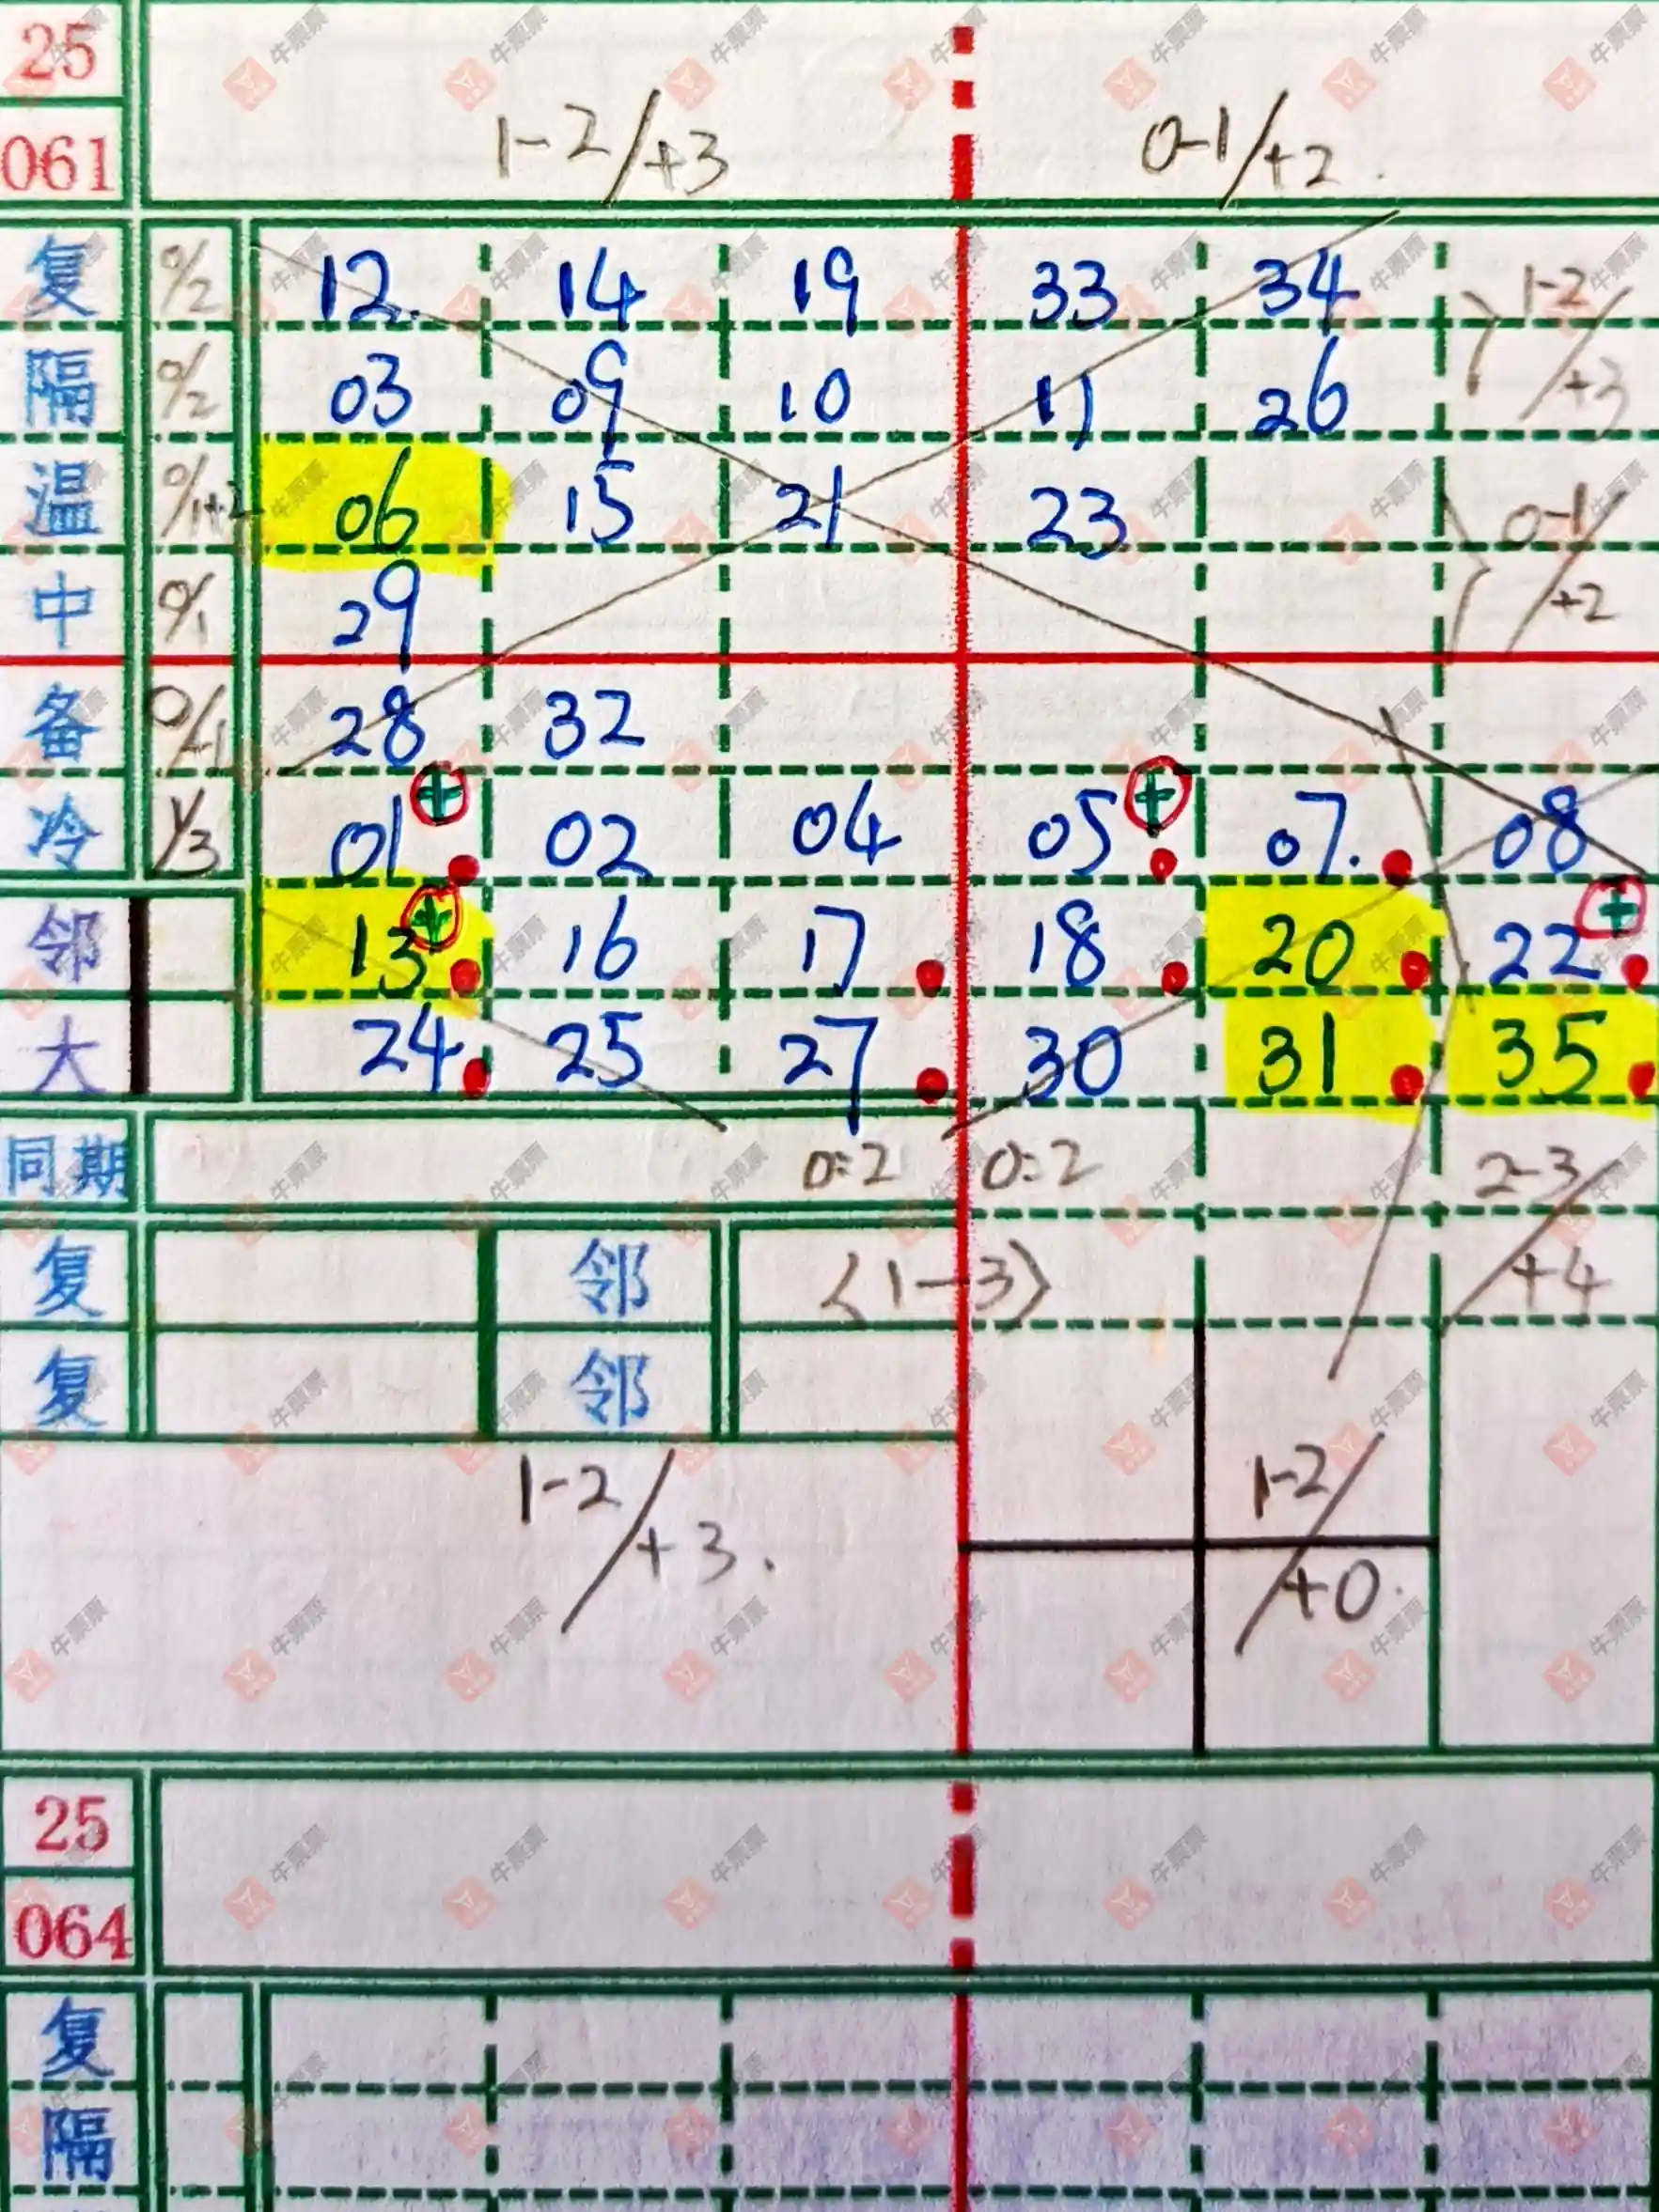 25
061 1-2/+3 0-1/+2.
复 0/2 12. 14 19 33 34 1-2/+3
隔 0/2 03 09 10 11 26
温 0/1+2 06 15 21 23 0-1/+2
中 0/1 29
备 0/+1 28 32
冷 1/3 01 + 02 04 05 + 07. 08
邻 13 + 16 17 18 20 22 +
大 24 25 27 30 31 35
同期 0=2 0:2 2-3/+4
复 邻 <1-3>
复 邻
1-2/+3. 1-2/+0.
25
064
复
隔
牛票票